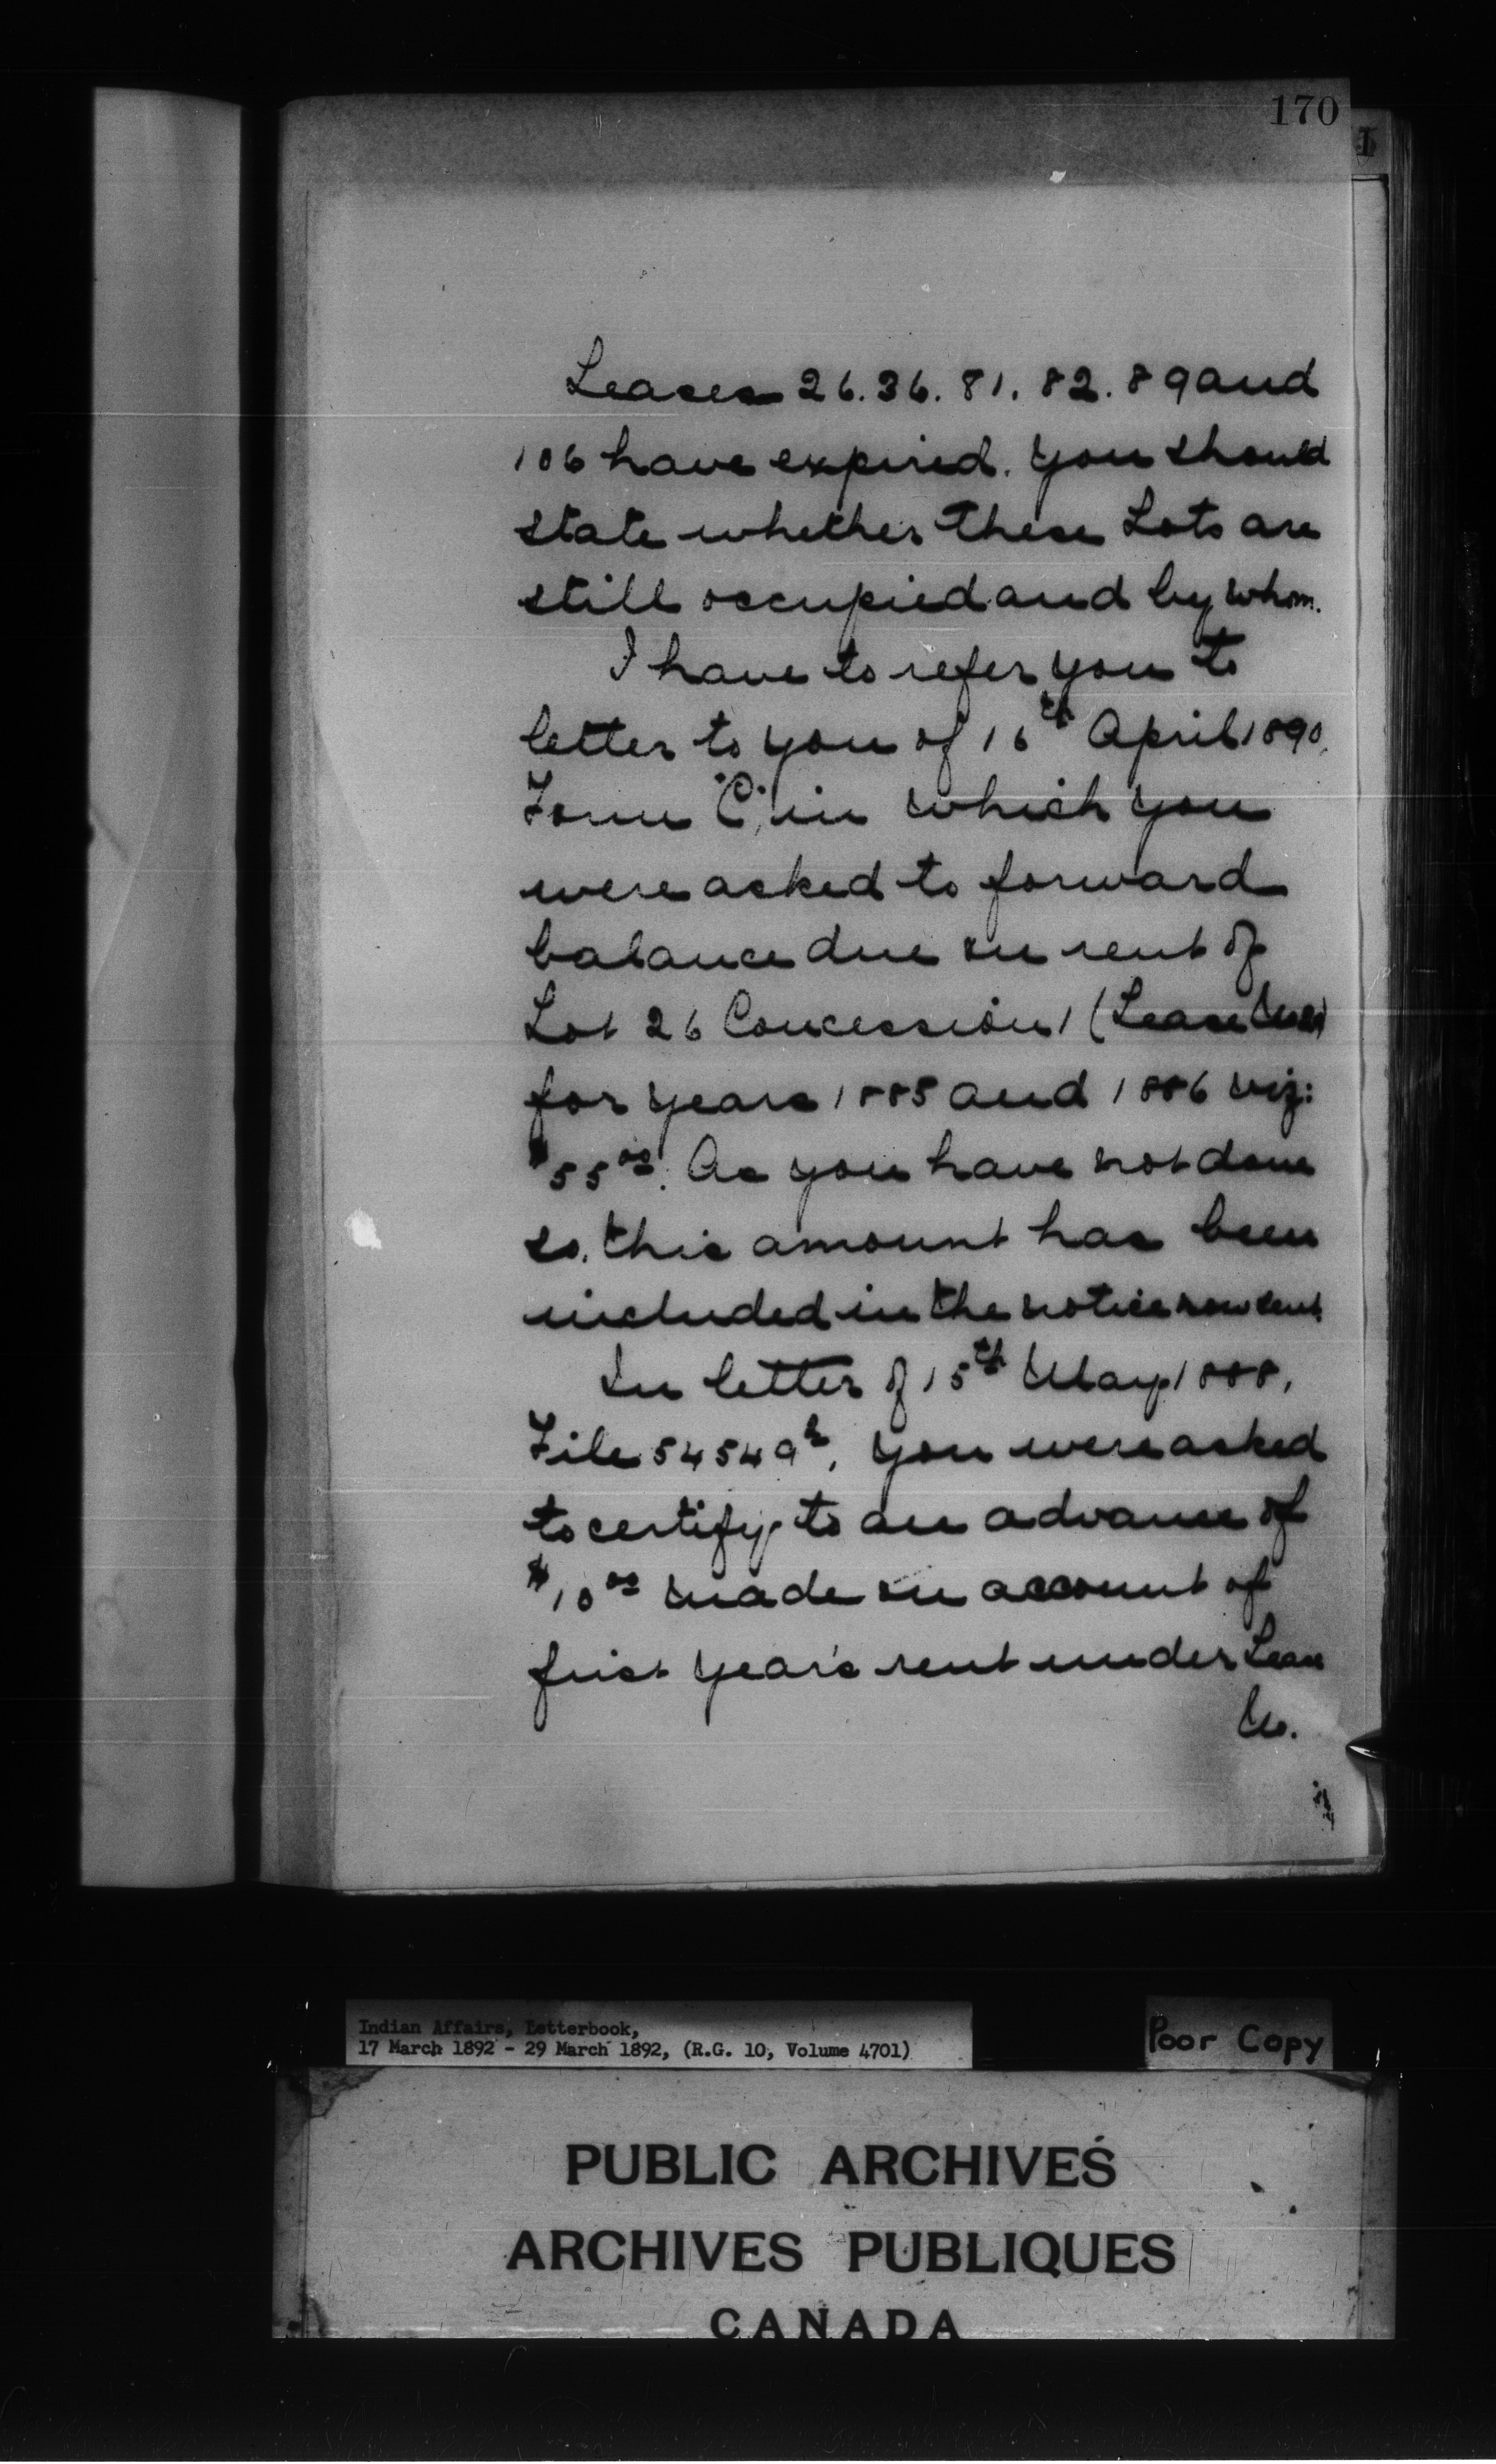 170
Leases 26. 36. 81. 82. 89 and
106 have expired. You should
state whether these Lots are
still occupied and by whom.
I have to refer you to
letter to you of 16th April 1890,
Form "C", in which you
were asked to forward
balance due on rent of
Lot 26 Concession 1 (Lease
for years 1885 and 1886 viz:
$55.00. As you have not done
so, this amount has been
included in the notice now sent
In letter of 15th May 1888,
File 54549, you were asked
to certify to an advance of
$10.00 made on account of
first year's rent under Lease
No.
Indian Affairs, Letterbook,
17 March 1892 - 29 March 1892, (R.G. 10, Volume 4701)
Poor Copy
PUBLIC ARCHIVES
ARCHIVES PUBLIQUES
CANADA